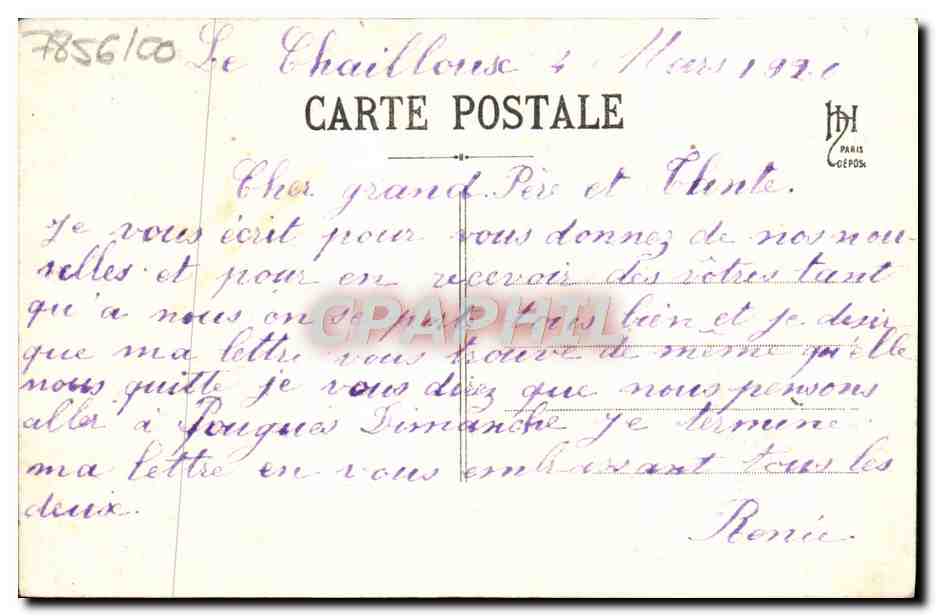 7856/00
Le Chailloux 4 Mars 1920
CARTE POSTALE
HH
PARIS
DÉPOSÉ
Cher grand Père et Tante.
Je vous écrit pour vous donnez de nos nou-
velles et pour en recevoir des vôtres tant
qu'a nous on se porte tous bien et je desir
que ma lettre vous trouve de même qu'elle
nous quitte je vous direz que nous pensons
aller à Pougues Dimanche je termine
ma lettre en vous embrassant tous les
deux.
CPAPHIL